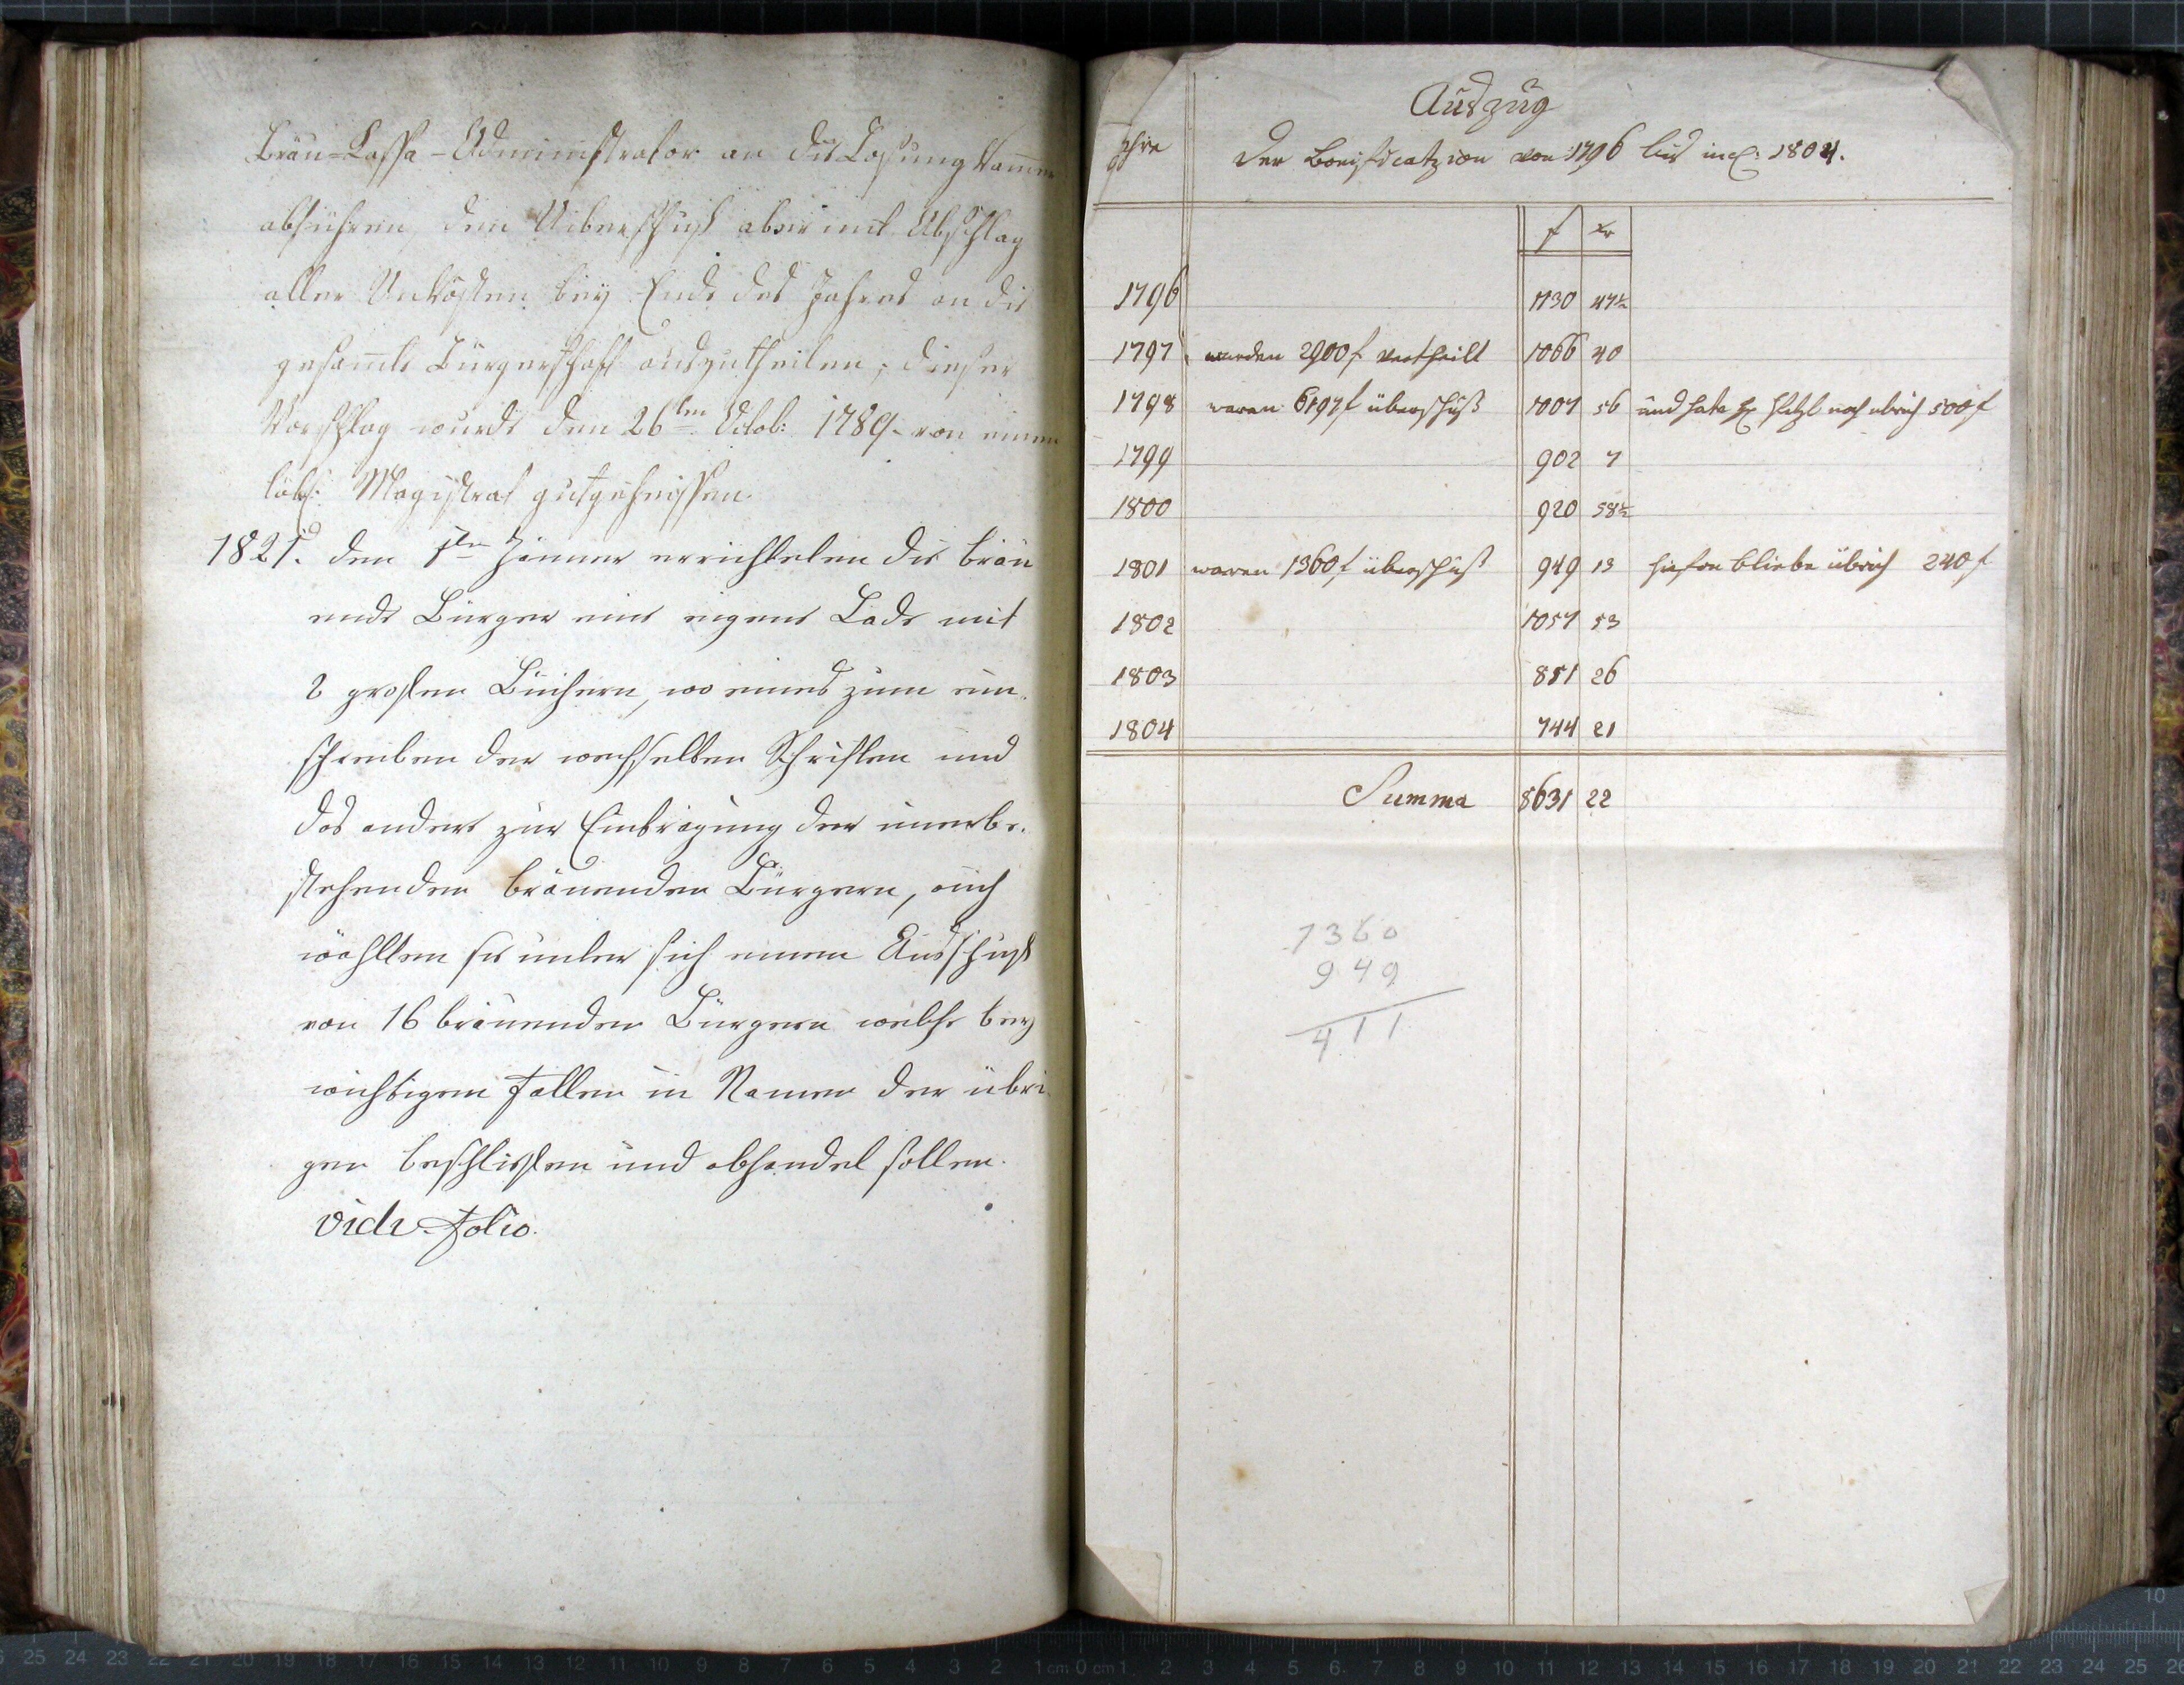 Bräu-Cassa-Administrator an die Losung kammer
abführen, den Uiberschuß aber mit Abschlag
aller Unkösten bey Ende des Jahres an die
gesam̅te Bürgerschaft auszutheilen; dieser
Vorschlag wurde den 26ten Octob: 1789. von einem
löbl: Magistrat gutgeheissen.
1821. den 1ten Jänner errichteten die bräu
ende Bürger eine eigene Lade mit
2 grosen Büchern, wo eines zum ein-
schreiben der wechselben Schriften und
das andere zur Eintragung der
stehenden bräuenden Bürgern, auch
wählten sie unter sich einen Ausschuß
von 16 bräuenden Bürgern welche bey
wichtigen Fällen in Namen der übri
gen beschlissen und abhandel sollen.
vide Folio.
Auszug
Jahre Der Bonificatzion von 1796 bis incl: 1804.
f xr
1796 1130 47½
1797 wurden 2900 f vertheilt 1066 40
1798 waren 6197 f überschuß 1007 56 und hate H noch übrich 500 f
1799 902 7
1800 920 58½
1801 waren 1360 f überschuß 949 13 bliebe übrich 240 f
1802 1057 53
1803 851 26
1804 744 21
Summa 8631 22
1360
949
411